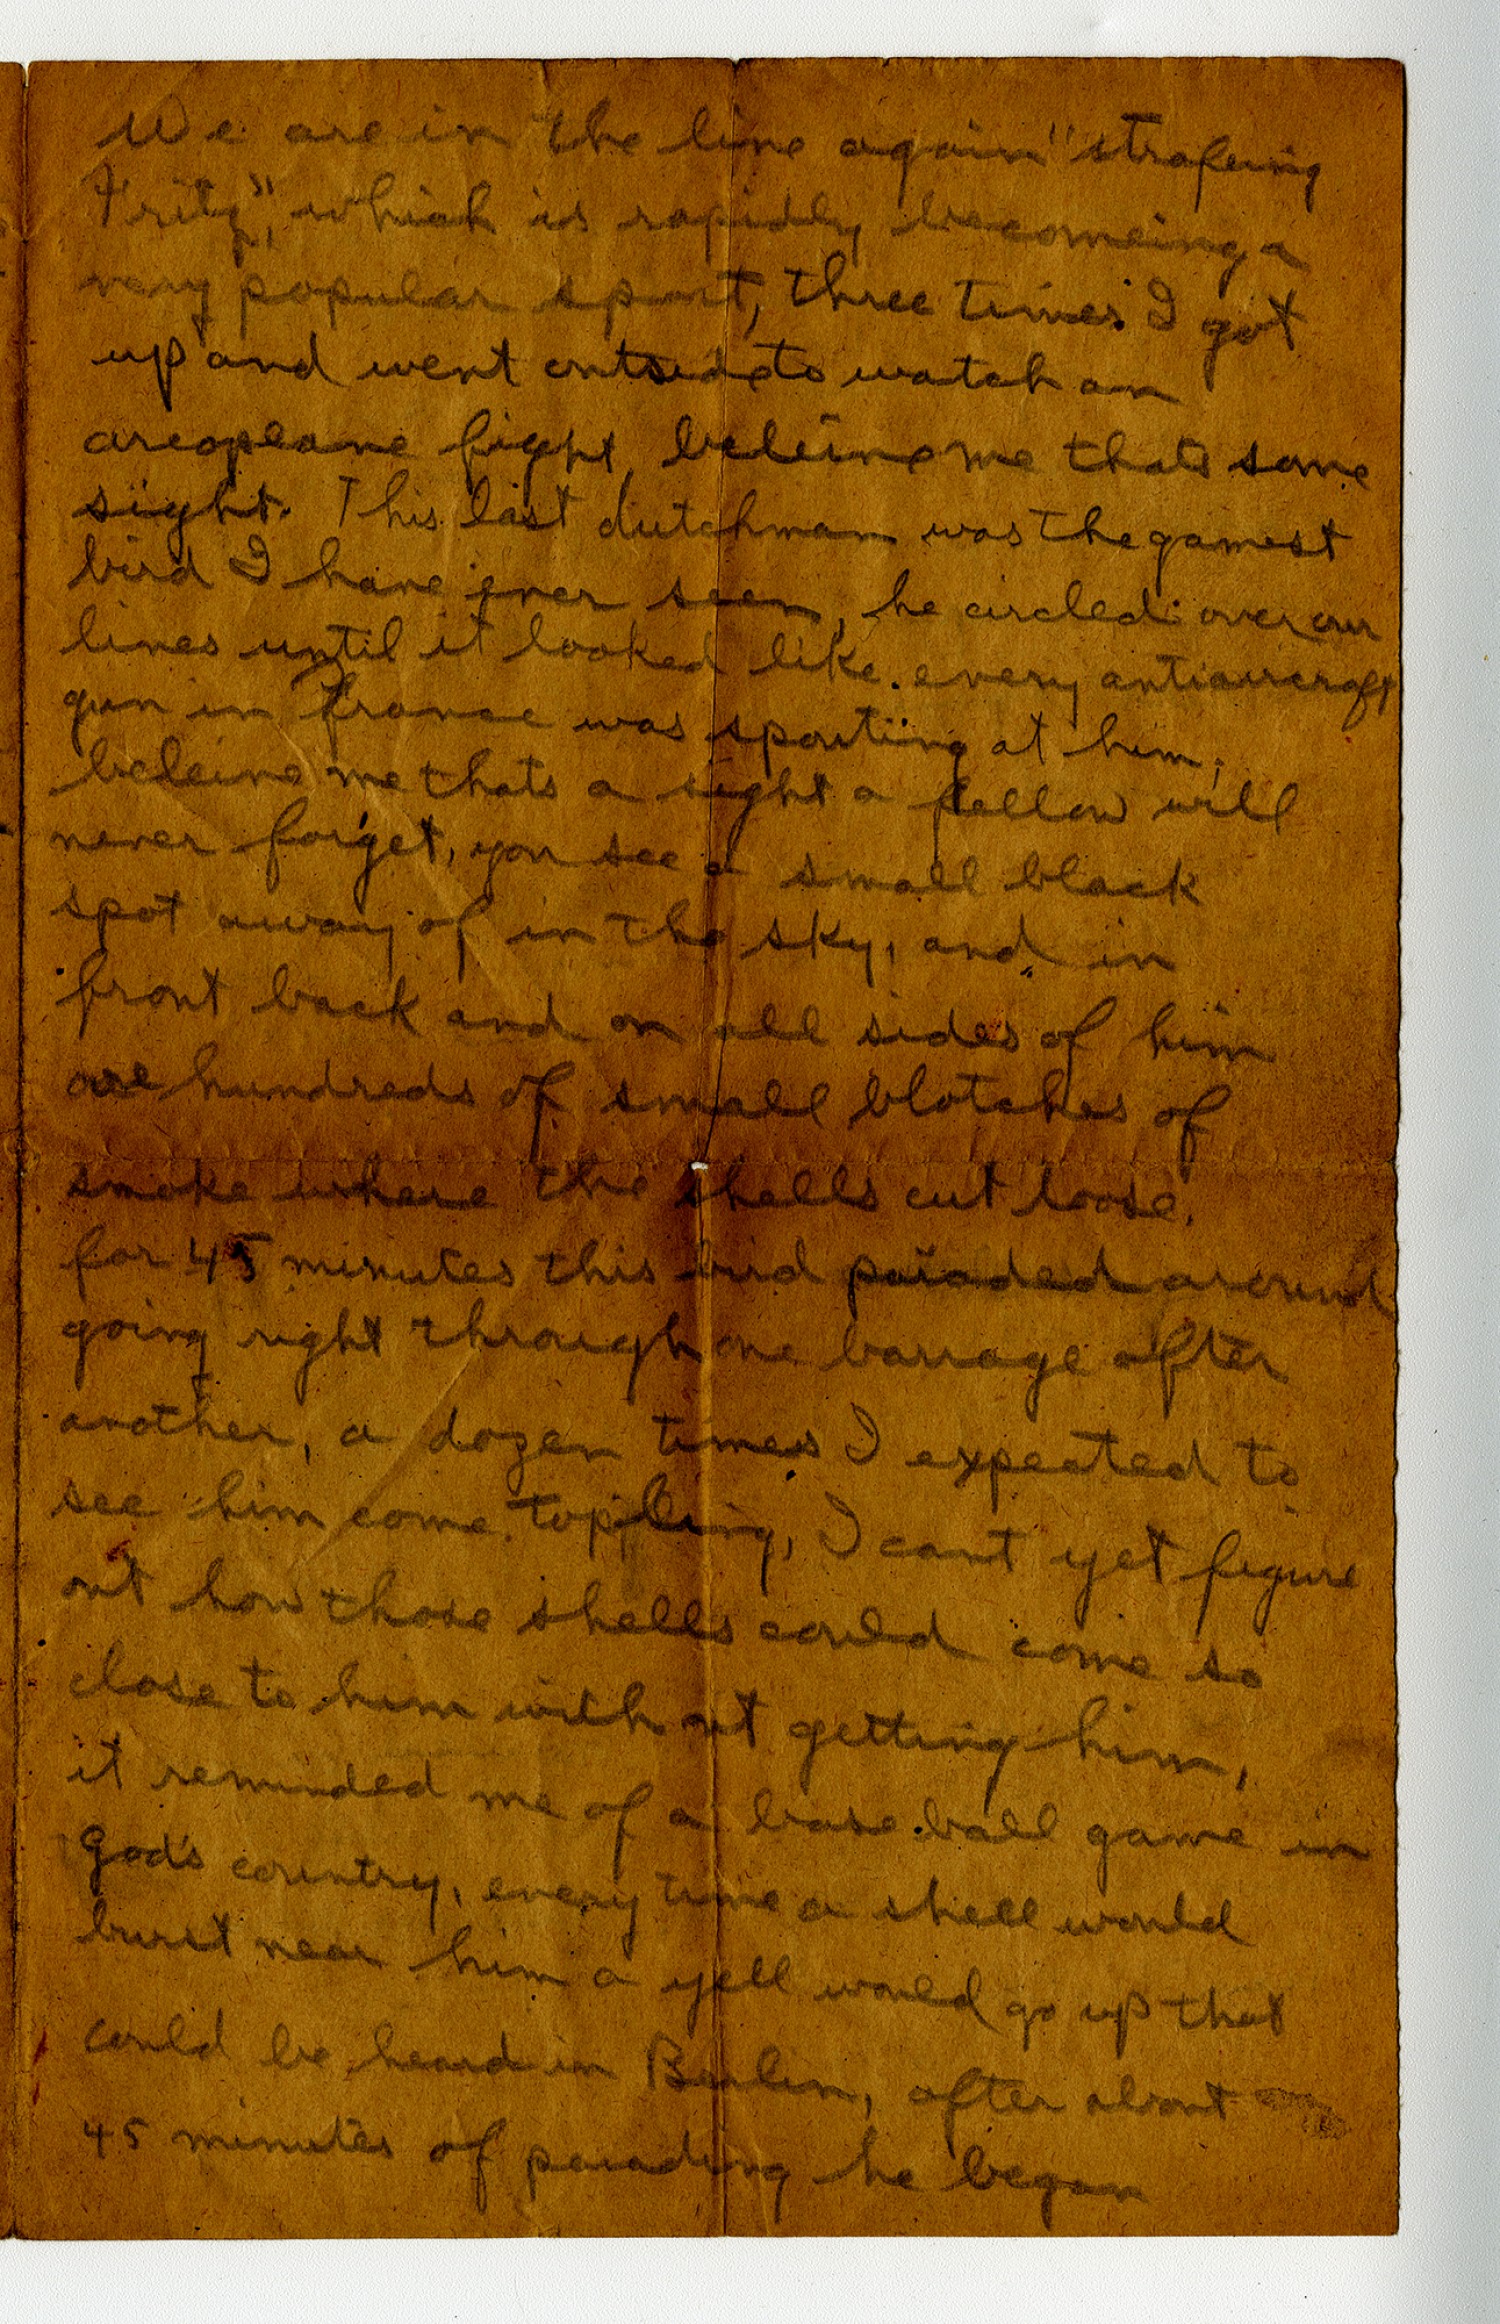 We are in the line again "strafeing
Fritz", which is rapidly becomeing a
very popular sport, three times I got
up and went outside to watch an
areoplane fight, beleive me thats some
sight. This last dutchman was the gamest
bird I have ever seen, he circled over our
lines until it looked like every antiaircraft
gun in France was spouting at him,
beleive me thats a sight a fellow will
never forget, you see a small black
spot away of in the sky, and in
front back and on all sides of him
are hundreds of small blotches of
smoke where the shells cut loose.
for 45 minutes this bird paraded around
going right through one barrage after
another, a dozen times I expected to
see him come toppling, I cant yet figure
out how those shells could come so
close to him without getting him,
it reminded me of a base ball game in
gods country, every time a shell would
burst near him a yell would go up that
could be heard in Berlin, after about
45 minutes of parading he began